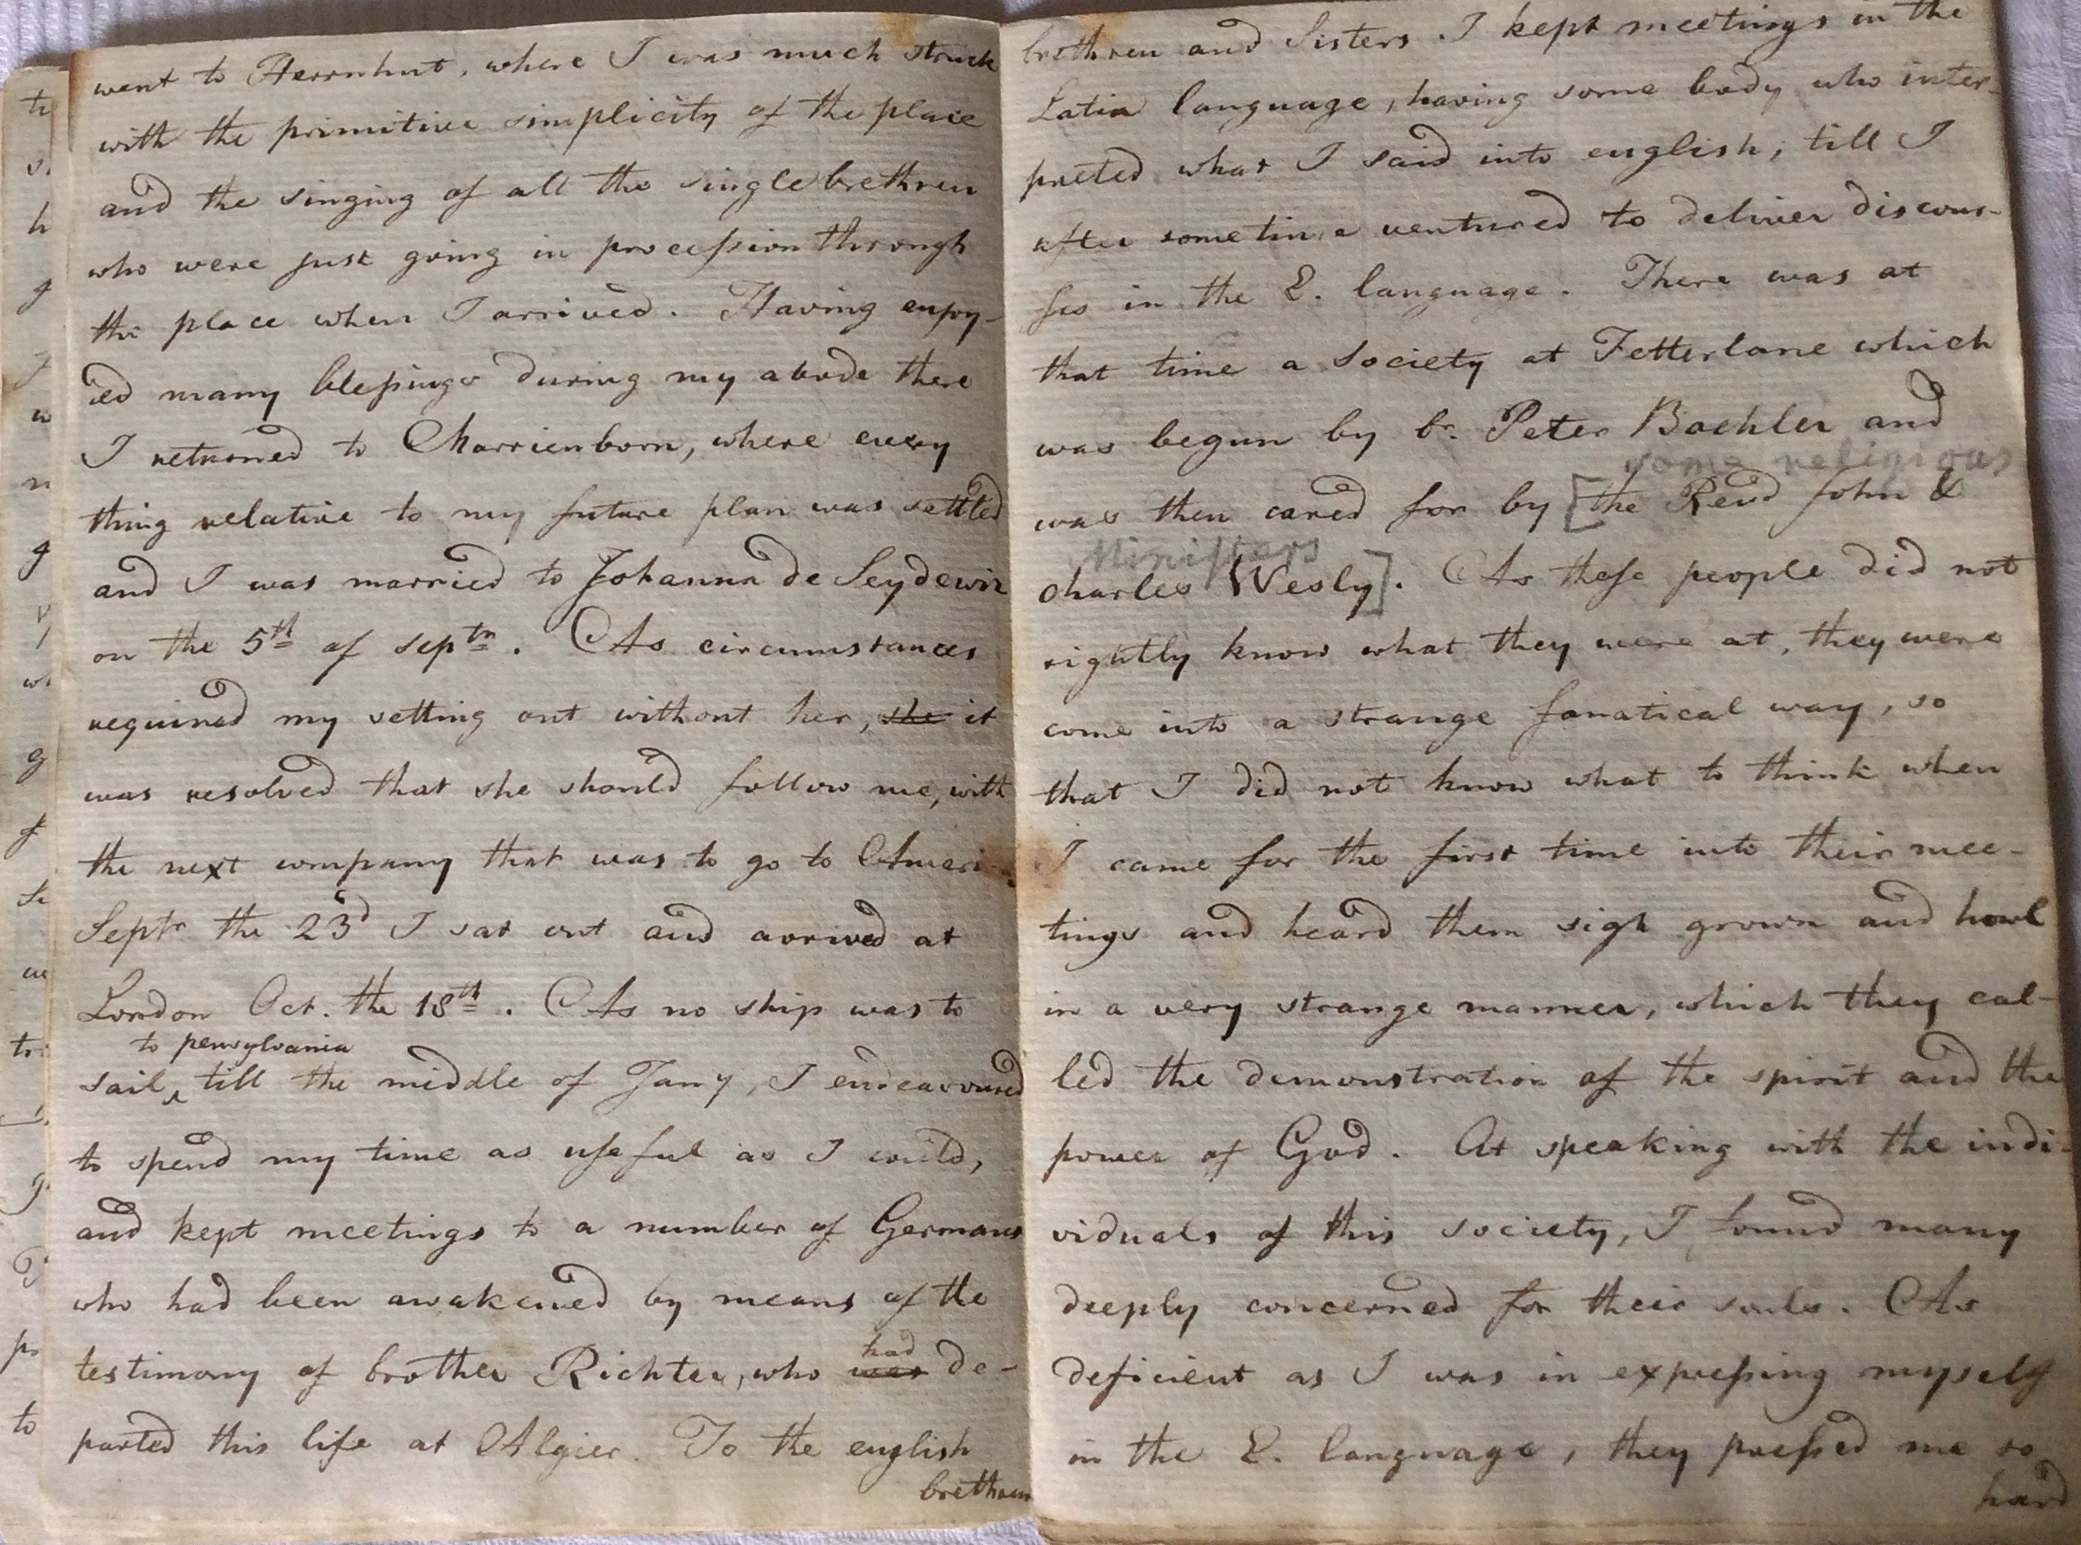 went to Herrnhut, where I was much struck
with the primitive simplicity of the place
and the singing of all the single brethren
who were just going in procession through
the place when I arrived. Having enjoy-
ed many blessings during my abode there
I returned to Marrienborn, where every
thing relative to my future plan was settled
and I was married to Johanna de Seydewiz
on the 5th of septr. As circumstances
required my setting out without her, she it
was resolved that she should follow me, with
the next company that was to go to Ameri
Septr the 23d I sat out and arrived at
London Oct. the 18th. As no ship was to
to pensylvania
sail, till the middle of Jany, I endeavoured
to spend my time as useful as I could,
and kept meetings to a number of Germans
who had been awakened by means of the
had
testimony of brother Richter, who was de-
parted this life at Algier. To the english
brethren
brethren and Sisters I kept meetings in the
Latin language, having some body who inter-
preted what I said into english, till I
after sometime ventured to deliver discour-
ses in the E. language. There was at
that time a Society at Fetterlane which
was begun by br. Peter Boehler and
some religious
was then cared for by [the Revd John &
Ministers
Charles Wesly]. As these people did not
rightly know what they were at, they were
come into a strange fanatical way, so
that I did not know what to think when
I came for the first time into their mee-
tings and heard them sigh grown and howl
in a very strange manner, which they cal-
led the demonstration of the spirit and the
power of God. At speaking with the indi-
viduals of this society, I found many
deeply concerned for their souls. As
deficient as I was in expressing myself
in the E. language, they pressed me so
hard